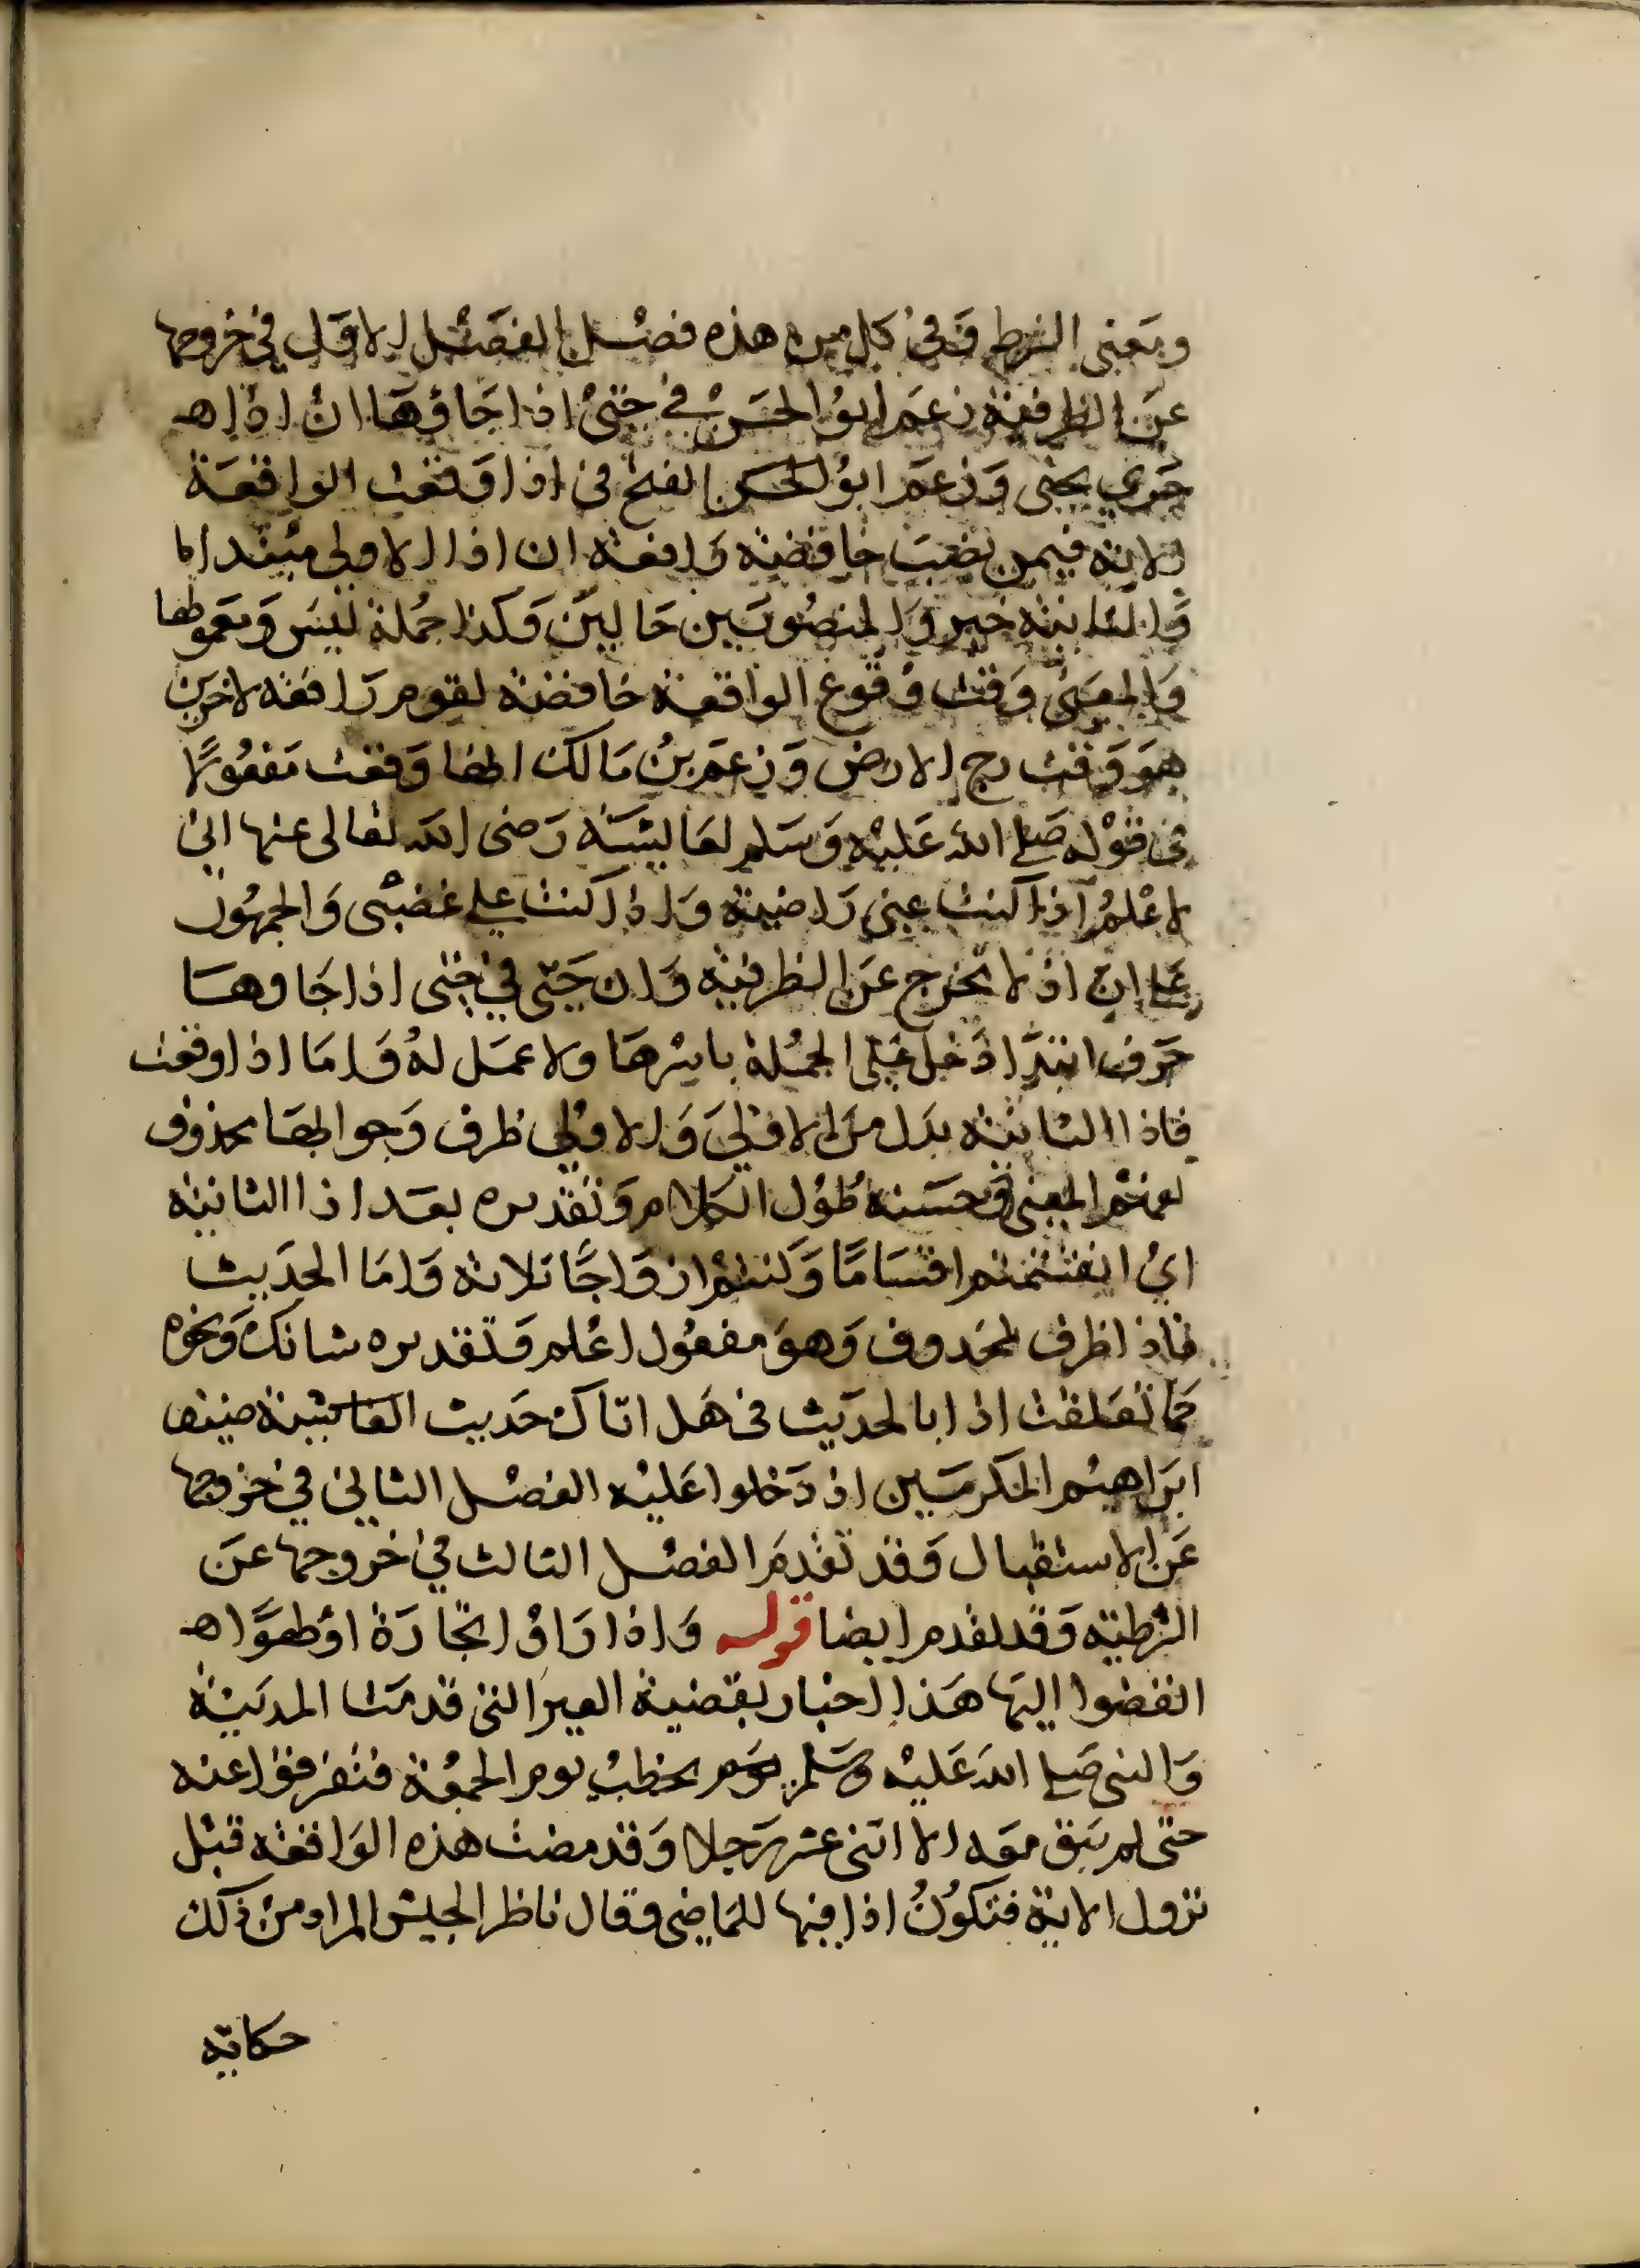 ومعنى الشرط وفى كل من هذه فصل الفصل الاول في خروجها
عن الظرفية زعم ابو الحسن في حتى اذا جاؤها ان اذا ه
جري بحتى وزعم ابو الفتح فى اذا وقعت الواقعة
الاية فيمن نصب خافضة رافعة ان اذا الاولى مبتدا
والثانية خبر والمنصوبين حالين وكذا جملة ليس ومعمولها
والمعنى وقت وقوع الواقعة خافضة لقوم رافعة لاخرين
هو وقت رج الارض وزعم بن مالك انها وقعت مفعولا
فى قوله صلى الله عليه وسلم لعايشة رضى الله تعالى عنها انى
لاعلم اذا كنت عنى راضية واذا كنت علي غضبى والجمهور
على ان اذا لا تخرج عن الظرفية وان حتى في حتى اذا جاوها
حرف ابتدا دخل على الجملة باسرها ولا عمل له واما اذا وقعت
فاذا الثانية بدل من الاولى والاولى ظرف وجوابها محذوف
لفهم المعنى وحسنه طول الكلام وتقديره بعد اذا الثانية
اي انقسمتم اقساما وكنتم ازواجا ثلاثة واما الحديث
فاذا ظرف لمحذوف وهو مفعول اعلم وتقديره شانك ونحوه
كما تعلقت اذ ابالحديث فى هل اتاك حديث الغاشية ضيف
ابراهيم المكرمين اذ دخلوا عليه الفصل الثاني في خروجها
عن الاستقبال وقد تقدم الفصل الثالث في خروجها عن
الشرطية وقد تقدم ايضا قوله واذا راوا تجارة او لهوا ه
انفضوا اليها هذا اخبار بقضية العير التى قدمت المدينة
والنبى صلى الله عليه وسلم يخطب يوم الجمعة فتفرقوا عنه
حتى لم يبق معه الا اثنى عشر رجلا وقد مضت هذه الواقعة قبل
نزول الاية فتكون اذا فيها للماضى وقال ناظر الجيش المراد من ذلك
حكاية